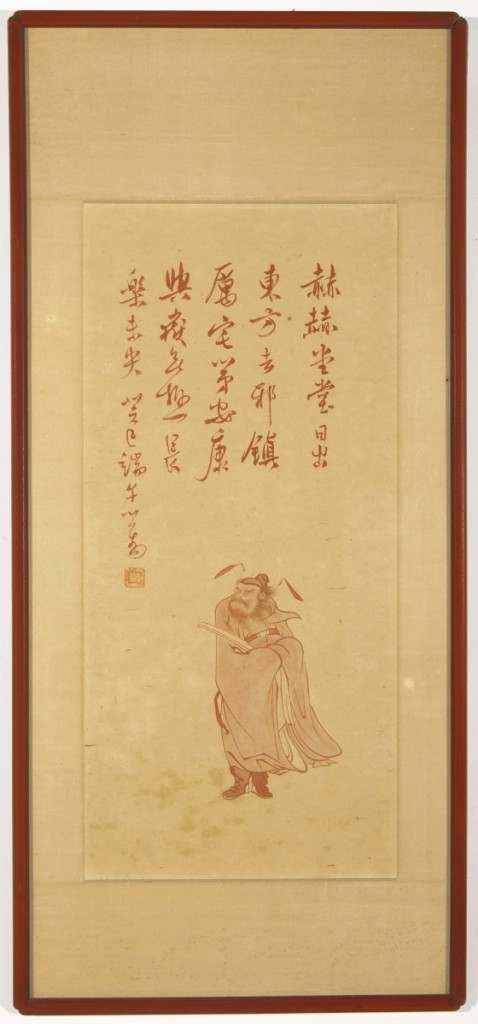 赫赫堂堂日出
東方去邪鎮
厲宅第安康
與歲無極長
樂未央 癸巳端午心畬